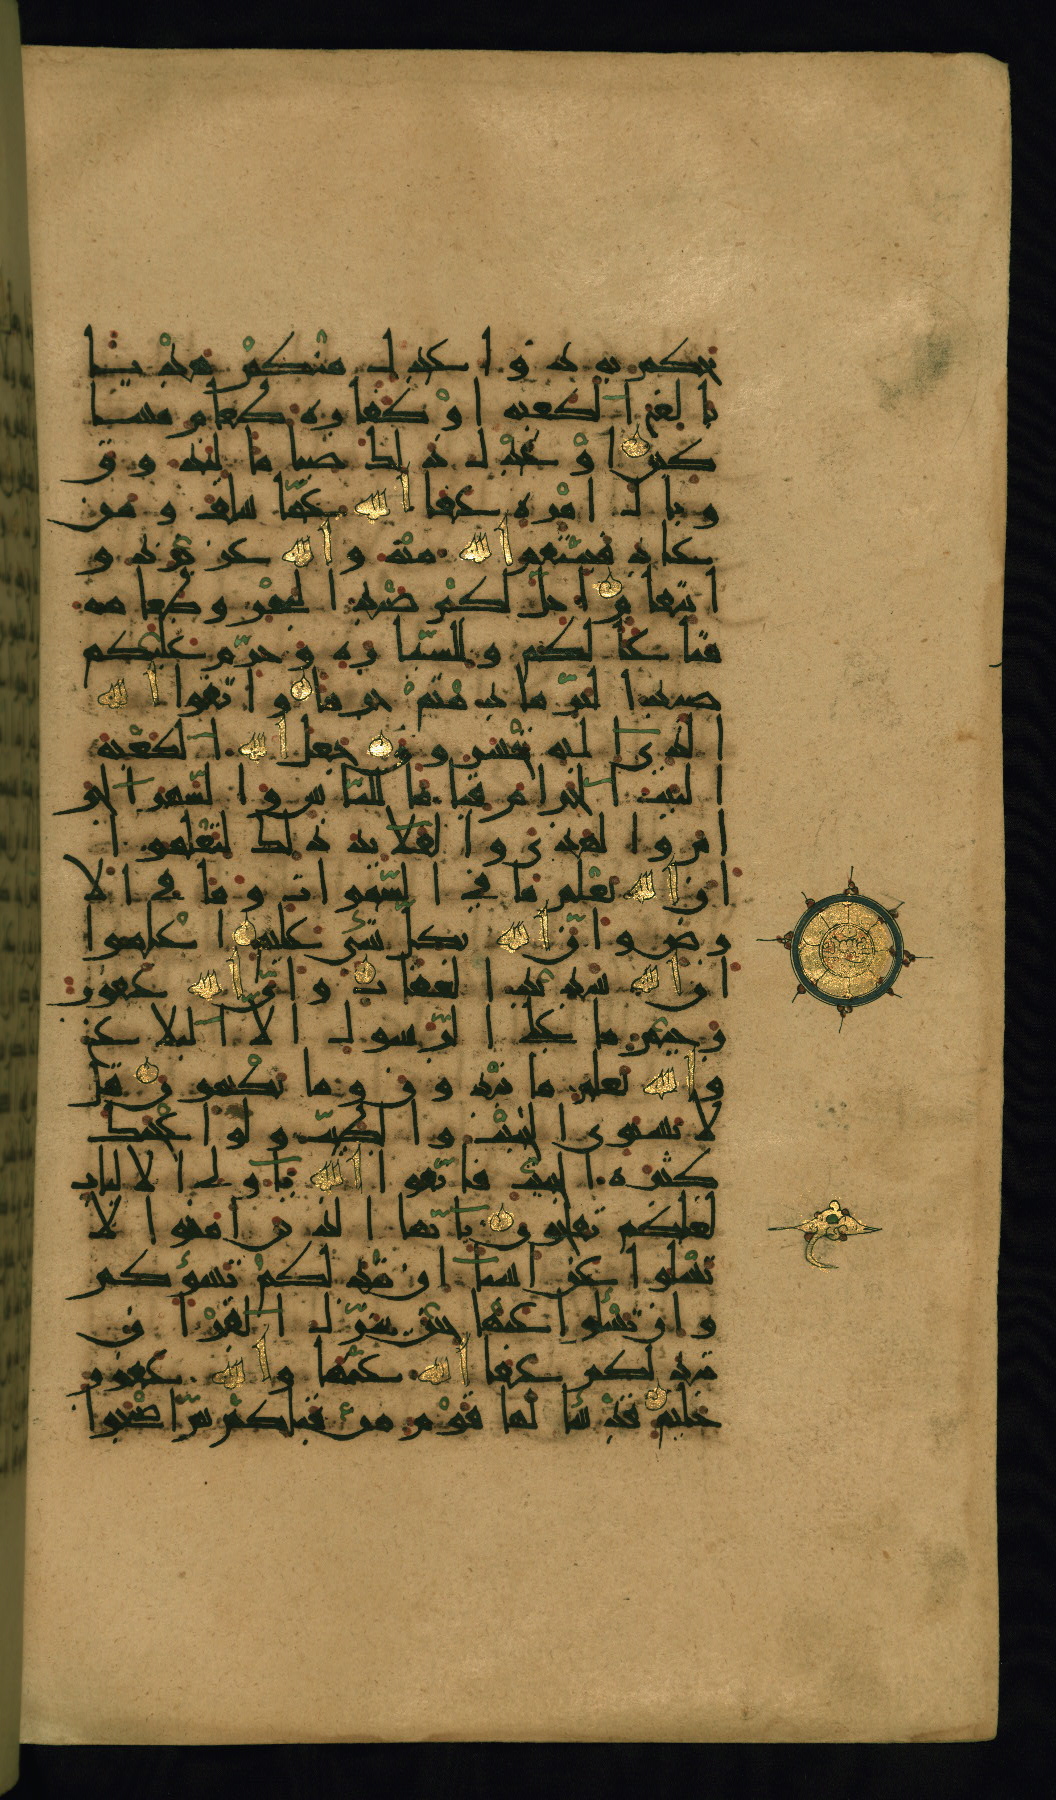 يحكم به ذوا عدل منكم هديا
بالغ الكعبه او كفاره طعام مسا
كين او عدل ذلك صياما ليذوق
وبال امره عفا الله عما سلف ومن
عاد فينتقم الله منه والله عزيز ذو
انتقام احل لكم صيد البحر وطعامه
متاعا لكم وللسياره وحرم عليكم
صيد البر ما دمتم حرما واتقوا الله
الذى اليه تحشرون جعل الله الكعبه
البيت الحرام قياما للناس والشهر الحر
ام والهدى والقلايد ذلك لتعلموا
ان الله يعلم ما في السموات وما في الا
رض وان الله بكل شى عليم اعلموا
ان الله شديد العقاب وان الله غفور
رحيم ما على الرسول الا البلاغ
والله يعلم ما تبدون وما تكتمون قل
لا يستوى الخبيث والطيب ولو اعجبك
كثره الخبيث فاتقوا الله ياولى الالباب
لعلكم تفلحون يايها الذين امنوا لا
تسلوا عن اشيا ان تبد لكم تسؤكم
وان تسلوا عنها حين ينزل القران
تبد لكم عفا الله عنها والله غفور
حليم قد سالها قوم من قبلكم ثم اصبحوا